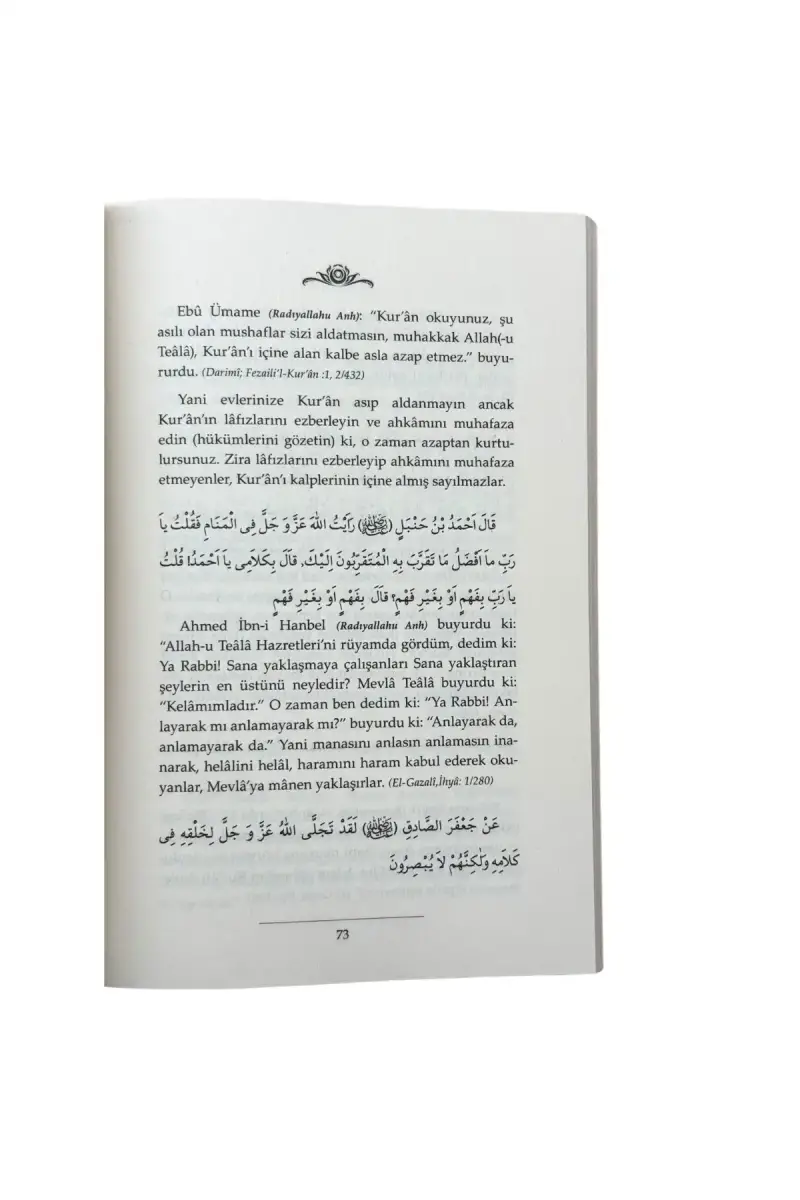 Ebû Ümame (Radıyallahu Anh): “Kur’ân okuyunuz, şu
asılı olan mushaflar sizi aldatmasın, muhakkak Allah(-u
Teâlâ), Kur’ân’ı içine alan kalbe asla azap etmez.” buyu-
rurdu. (Darimî; Fezaili’l-Kur’ân :1, 2/432)
Yani evlerinize Kur’ân asıp aldanmayın ancak
Kur’ân’ın lâfızlarını ezberleyin ve ahkâmını muhafaza
edin (hükümlerini gözetin) ki, o zaman azaptan kurtu-
lursunuz. Zira lâfızlarını ezberleyip ahkâmını muhafaza
etmeyenler, Kur’ân’ı kalplerinin içine almış sayılmazlar.
قَالَ اَحْمَدُ بْنُ حَنْبَلٍ (رضي الله عنه) رَاَيْتُ اللهَ عَزَّ وَ جَلَّ فِى الْمَنَامِ فَقُلْتُ يَا
رَبِّ مَا اَفْضَلُ مَا تَقَرَّبَ بِهِ الْمُتَقَرِّبُونَ اِلَيْكَ, قَالَ بِكَلَامِى يَا اَحْمَدُ! قُلْتُ
يَا رَبِّ بِفَهْمٍ اَوْ بِغَيْرِ فَهْمٍ؟ قَالَ بِفَهْمٍ اَوْ بِغَيْرِ فَهْمٍ
Ahmed İbn-i Hanbel (Radıyallahu Anh) buyurdu ki:
“Allah-u Teâlâ Hazretleri’ni rüyamda gördüm, dedim ki:
Ya Rabbi! Sana yaklaşmaya çalışanları Sana yaklaştıran
şeylerin en üstünü neyledir? Mevlâ Teâlâ buyurdu ki:
“Kelâmımladır.” O zaman ben dedim ki: “Ya Rabbi! An-
layarak mı anlamayarak mı?” buyurdu ki: “Anlayarak da,
anlamayarak da.” Yani manasını anlasın anlamasın ina-
narak, helâlini helâl, haramını haram kabul ederek oku-
yanlar, Mevlâ’ya mânen yaklaşırlar. (El-Gazalî,İhyâ: 1/280)
عَنْ جَعْفَرَ الصَّادِقِ (رضي الله عنه) لَقَدْ تَجَلَّى اللهُ عَزَّ وَ جَلَّ لِخَلْقِهِ فِى
كَلَامِهِ وَلٰكِنَّهُمْ لَا يُبْصِرُونَ
73